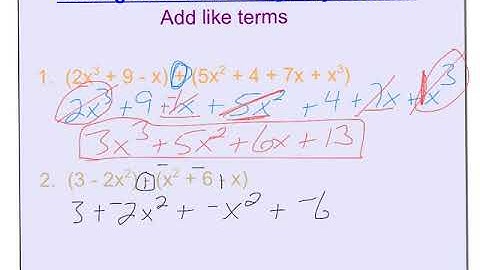 Add like terms
1. (2x³ + 9 - x) + (5x² + 4 + 7x + x³)
2x³ + 9 + -x + 5x² + 4 + 7x + 1x³
3x³ + 5x² + 6x + 13
2. (3 - 2x²) + (x² + 6 + x)
3 + -2x² + -x² + -6